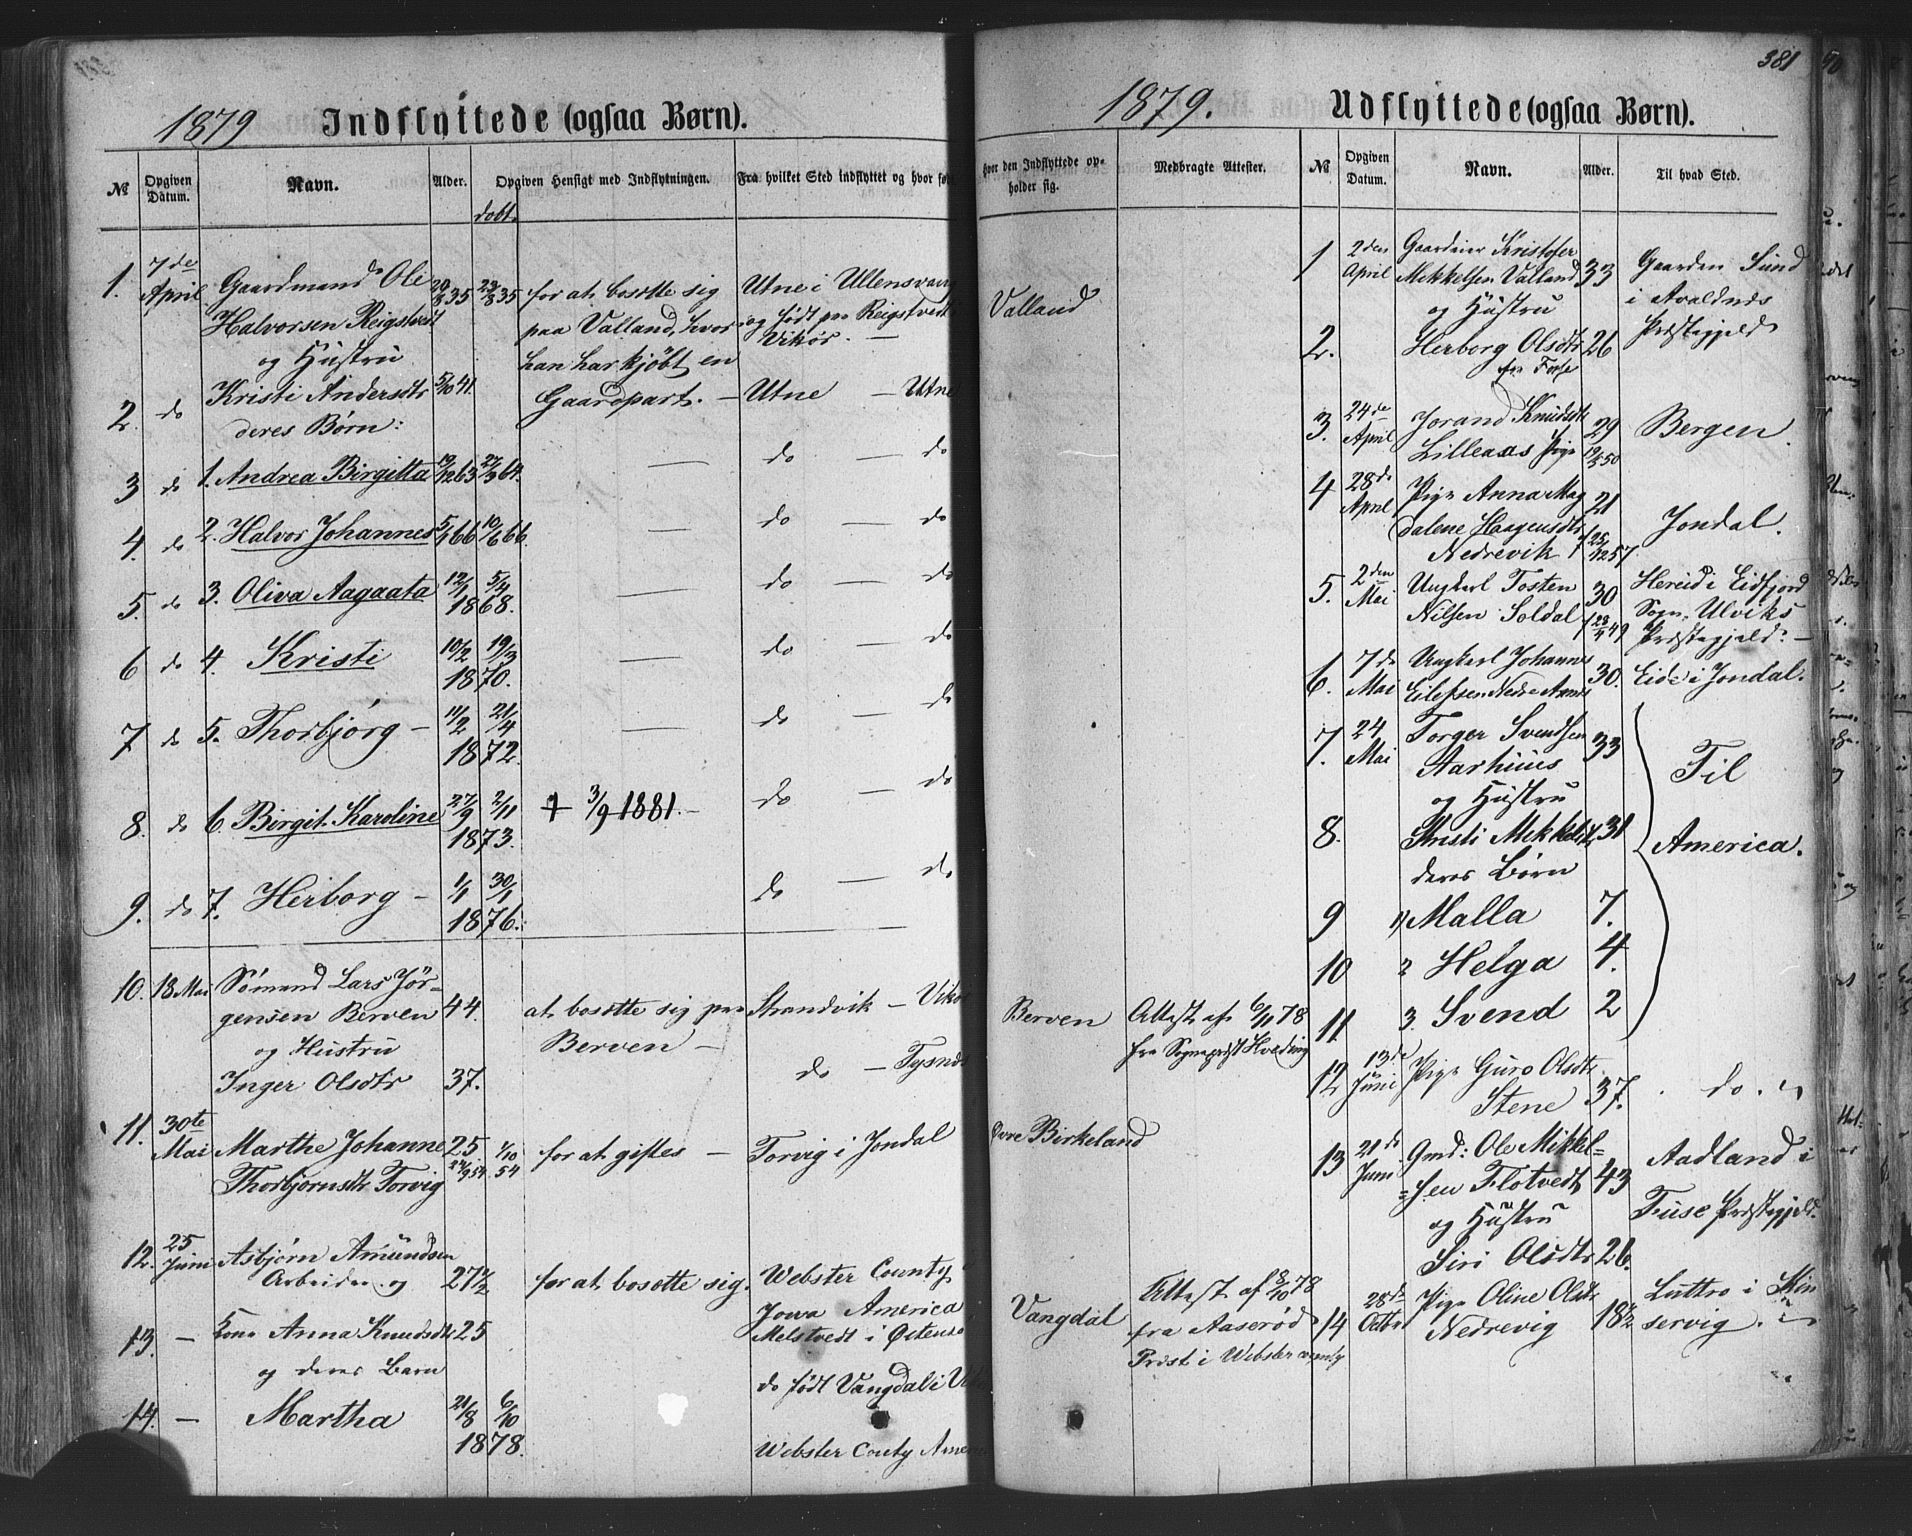 1879 Indflyttede (ogsaa Børn).
№ Opgiven Datum. Navn. Alder. døbt. Opgiven Hensigt med Indflytningen. Fra hvilket Sted indflyttet og hvor fød
hvor den Indflyttede opholder sig. Medbragte Attester.
1. 7de April Gaardmand Ole 35 35 for at bosætte sig Utne i Ullensvang Valland
Halvorsen Reigstvedt paa Valland, hvor og født paa Reigstvedt i
og Hustru han har kjøbt en Vikør. —
2. do Kristi Andersdtr 5/10 41. Gaardpart. — Utne — Utne
deres Børn:
3 do 1. Andrea Birgitta 19/12 63 27/3 64. — do — do
4. do 2. Halvor Johannes 66 10/6 66. — do — do
5. do 3. Oliva Aagaata 12/1 5/4 1868. — do — do
6 do 4. Kristi 10/2 19/3 1870. — do — do
7 do 5. Thorbjørg — 11/2 21/4 1872. — do — do
8. do 6. Birgit. Karoline 27/9 2/11 1873. † 3/9 1881. — do — do
9. do 7. Herborg — 1/1 30/1 1876. do — do
10. 18 Mai Sømand Lars Jør= 44. at bosætte sig paa Strandvik — Vikø Berven Attest af 6/11 78
gensen Berven Berven — fra Sogneprest Hvoding
og Hustru
Inger Olsdtr 37. do — Tysnæs
11. 30te Mai Marthe Johanne 25. 1/10 54 for at giftes — Torvig i Jondal Øvre Birkeland
Thorbjørnsdtr Torvig 54
12. 25 Juni Asbjørn Amundsen
Arbeider og 27 1/2 for at bosætte sig. Webster County Vangdal Attest af 8/10 78
Jowa America fra Aaserød
13. — Kone Anna Knudsdtr 25 Melstvedt i Østensø Prest i Webster county
og deres Barn do født Vangdal i
14. — Martha 21/8 6/10 1878. Webster Couty Amer
381
1879. Udflyttede (ogsaa Børn).
№ Opgiven Datum. Navn. Alder. Til hvad Sted.
1 2den April Gaardeier Kristofer
Mekkelsen Valland 33 Gaarden Sund
og Hustru i Avaldnes
2. Herborg Olsdtr 26 Præstegjeld
3. 24de April Jorand Knudsdtr 29 Bergen.
Lilleaas Pige 50
4 28de April Pige Anna Mag 21
dalene Haagensdtr Jondal.
Nedrevik 57
5. 2den Mai Ungkarl Tosten 30 Hereid i Eidfjord
Nilsen Soldal 49 Sogn, Ulviks
Præstegjeld. —
6. 7de Mai Ungkarl Johannes 30. Eide i Jondal.
Eilefsen Nedre
7. 24 Mai Torger Svendsen 33 Til
Aarhuus
og Hustru
8. Kristi Mekkelsdtr 31 America.
deres Børn
9 1) Malla 7.
10 2 Helga 4.
11 3. Svend 2
12 13de Juni Pige Guro Olsdtr
Stene 37. do.
13 21de Juni Gmd: Ole Mikkel=
=sen Flotvedt 43 Aadland i
og Hustru Fuse Præstegjeld.
Siri Olsdtr 26.
14 28de Octbr Pige Oline Olsdtr 18 1/2 Luttro i Kin
Nedrevig servig.